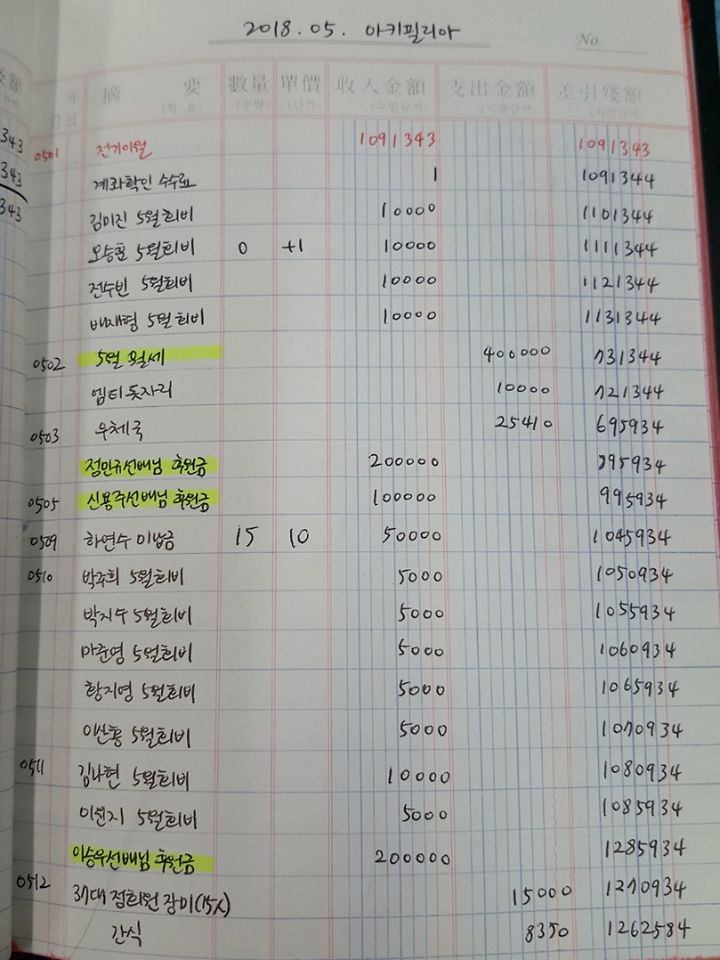 2018.05. 아키필리아
No.
年 摘要 數量 單價 收入金額 支出金額 差引殘額
月日 (적요) (수량) (단가) (수입금액) (지출금액)
343
0501 전기이월 1091343 1091343
343
계좌확인 수수료 1 1091344
343
김미진 5월회비 10000 1101344
오승훈 5월회비 0 +1 10000 1111344
전수빈 5월회비 10000 1121344
배재형 5월회비 10000 1131344
0502 5월 월세 400000 731344
엠티돗자리 10000 721344
0503 우체국 25410 695934
정민규선배님 후원금 200000 895934
0505 신용주선배님 후원금 100000 995934
0509 하연수 미납금 15 10 50000 1045934
0510 박주희 5월회비 5000 1050934
박지수 5월회비 5000 1055934
마준영 5월회비 5000 1060934
황지영 5월회비 5000 1065934
이산홍 5월회비 5000 1070934
0511 김나현 5월회비 10000 1080934
이현지 5월회비 5000 1085934
이승우선배님 후원금 200000 1285934
0512 37대 정회원 장미(15人) 15000 1270934
간식 8350 1262584